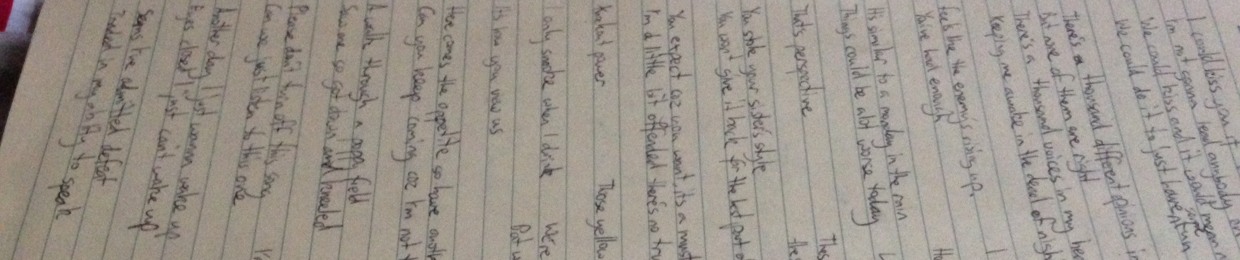 I could kiss you if
I'm not gonna tell anybody
We could kiss and it would mean
We could do it to just have fun
There's a thousand different opinions in
But none of them are right
There's a thousand voices in my hea
Keeping me awake in the dead of nigh
feels like the enemy's rising up
You've had enough
It's similar to a monday in the rain
Things could be a lot worse today
That's perspective
You stole your sister's style
You won't give it back for the
You expect coz you want, it's a
I'm a little bit offended there's no tru
power
Those yellow
I only smoke when I drink
We're
It's how you view us
Here comes the opposite so have anoth
Can you keep coming coz I'm not
A walk through a poppy field
Save me so get down and kneeled
Please don't turn off this song
Can we just listen to this one
Another day I just wanna wake up
Eyes closed I just can't wake up
Sensitive admitted defeat
I need in my to speak